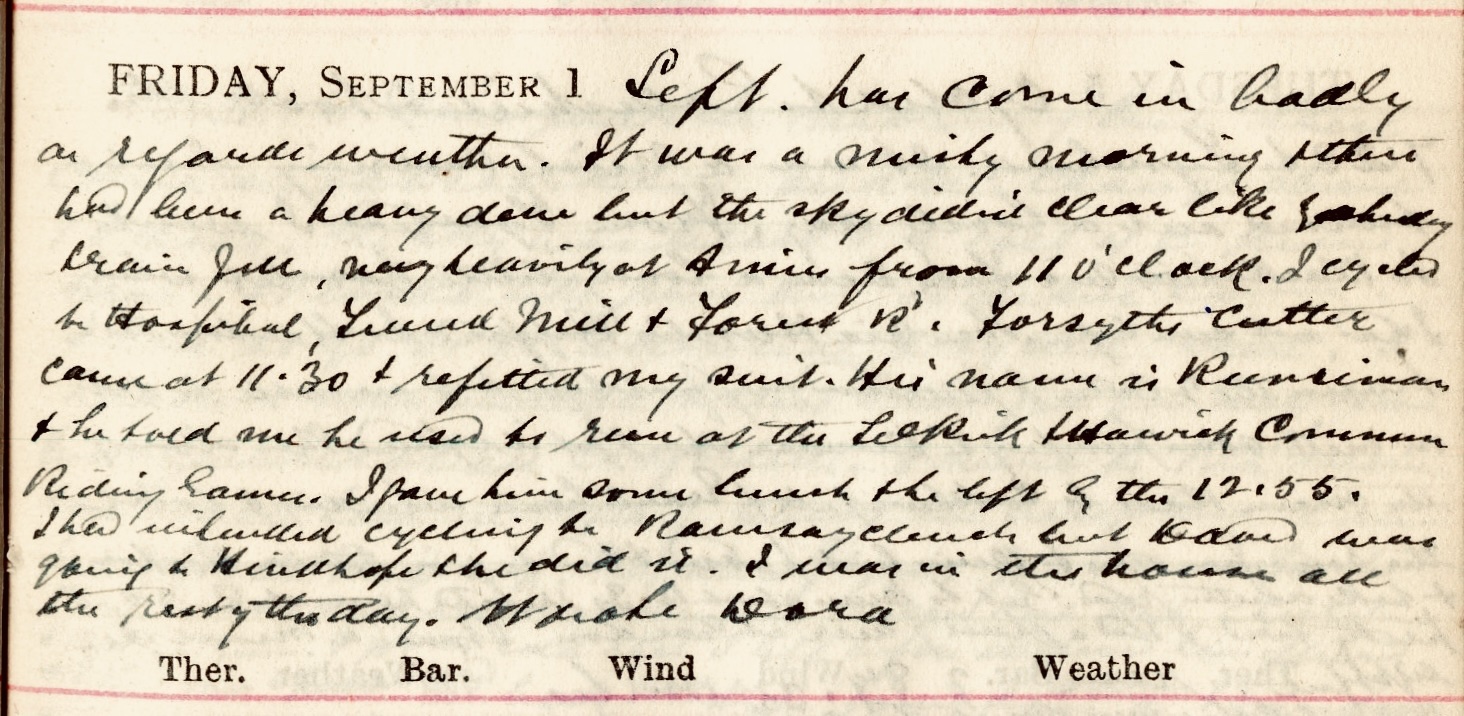 FRIDAY, SEPTEMBER 1 Sept. has come in badly
as regards weather. It was a misty morning & there
had been a heavy dew but the sky didn't clear like yesterday
& rain fell, very heavily at times from 11 o'clock. I cycled
to Hospital, Mill & Forest Rd. Forsyth's Cutter
came at 11.30 & refitted my suit. His name is Runciman
& he told me he used to run at the Selkirk & Hawick Common
Riding Games. I gave him some lunch & he left by the 12.55.
I had intended cycling to Ramsaycleuch but David was
going to Hindhope & he did it. I was in the house all
the rest of the day. Wrote Dora
Ther. Bar. Wind Weather